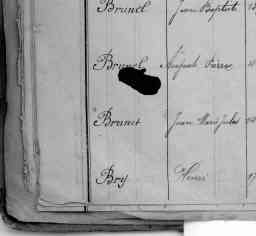 Brunel Jean Baptiste
Brunel Auguste Pierre
Brunet Jean Marie Jules
Bry Henri